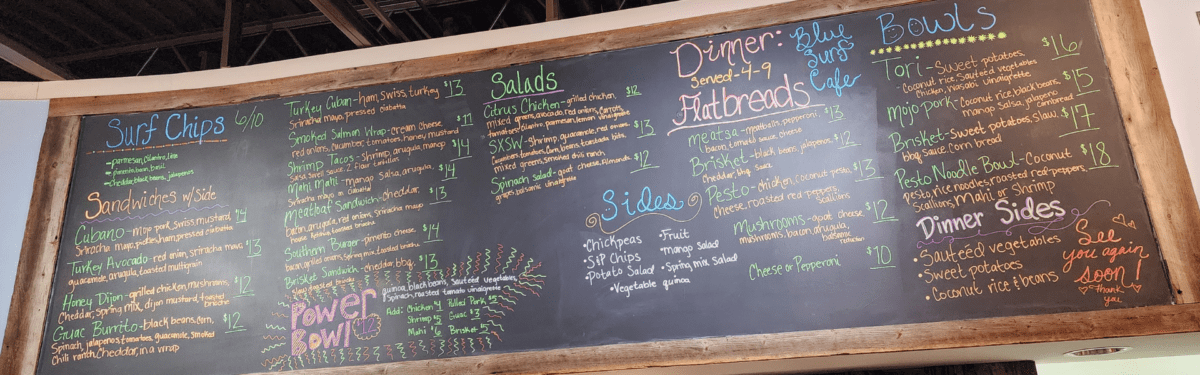 Surf Chips 6/10
-parmesan, cilantro, lime
-parmesan, bacon,
-cheddar, black beans, jalapenos
Sandwiches w/ Side
Cubano- mojo pork, Swiss, mustard, $14
Sriracha mayo, pickles, ham, pressed ciabatta
Turkey Avocado- red onion, sriracha mayo, $13
guacamole, arugula, toasted multigrain
Honey Dijon- grilled chicken, mushrooms, $12
Cheddar, spring mix, dijon mustard, toasted brioche
Guac Burrito- black beans, corn, $12
Spinach, jalapenos, tomatoes, guacamole, smoked
Chili ranch, Cheddar, in a wrap
Turkey Cuban- ham, swiss, turkey $13
Sriracha mayo, pressed ciabatta
Smoked Salmon Wrap- cream cheese $11
red onions, cucumber, tomatoes, honey mustard
Shrimp Tacos- Shrimp, arugula, mango $14
Salsa, basil sauce, 2 flour tortillas
Mahi Mahi- mango Salsa, arugula, $14
Sriracha mayo on Ciabatta
Meatloaf Sandwich- Cheddar, $13
bacon, arugula, red onions, sriracha mayo
toasted brioche
Southern Burger- pimento cheese $14
bacon, grilled onions, Spring mix, toasted brioche
Brisket Sandwich- cheddar, bbq, $13
Slaw, toasted brioche
Power
Bowl $12
quinoa, black beans, Sauteed vegetables,
Spinach, roasted tomato vinaigrette
Add: Chicken $4 Pulled Pork $5
Shrimp $5 Guac $3
Mahi $6 Brisket $5
Salads
Citrus Chicken- grilled chicken, $12
mixed greens, avocado, red onions, Carrots,
tomatoes, Cilantro, parmesan, lemon vinaigrette
SXSW- Shrimp, guacamole, red onions $13
Cucumbers, tomatoes, Corn, beans, tortilla bits,
mixed greens, smoked chili ranch
Spinach Salad- goat cheese, Almonds $12
grapes, balsamic vinaigrette
Sides
• Chickpeas
• Sip Chips
• Potato Salad
• Fruit
• mango Salad
• Spring mix Salad
• Vegetable quinoa
Dinner:
Served- 4-9
Blue
Surf
Cafe
Flatbreads
meatsa- meatballs, pepperoni, $13
bacon, tomato sauce, cheese
Brisket- black beans, jalapenos $12
Cheddar, bbq sauce
Pesto- chicken, coconut pesto, $13
Cheese, roasted red peppers,
Scallions
Mushrooms- goat cheese $12
mushrooms, bacon, arugula,
balsamic reduction
Cheese or Pepperoni $10
Bowls
Tori- Sweet potatoes, $16
Coconut rice, Sauteed vegetables
Chicken, wasabi vinaigrette
mojo pork- Coconut rice, black beans, $15
mango Salsa, jalapeno
Cornbread
Brisket- Sweet potatoes, Slaw, $17
bbq sauce, corn bread
Pesto Noodle Bowl- Coconut $18
pesto rice noodles, roasted red peppers,
Scallions, Mahi or Shrimp
Dinner Sides
• Sauteed vegetables
• Sweet potatoes
• Coconut rice & beans
See
you again
soon!
thank
you